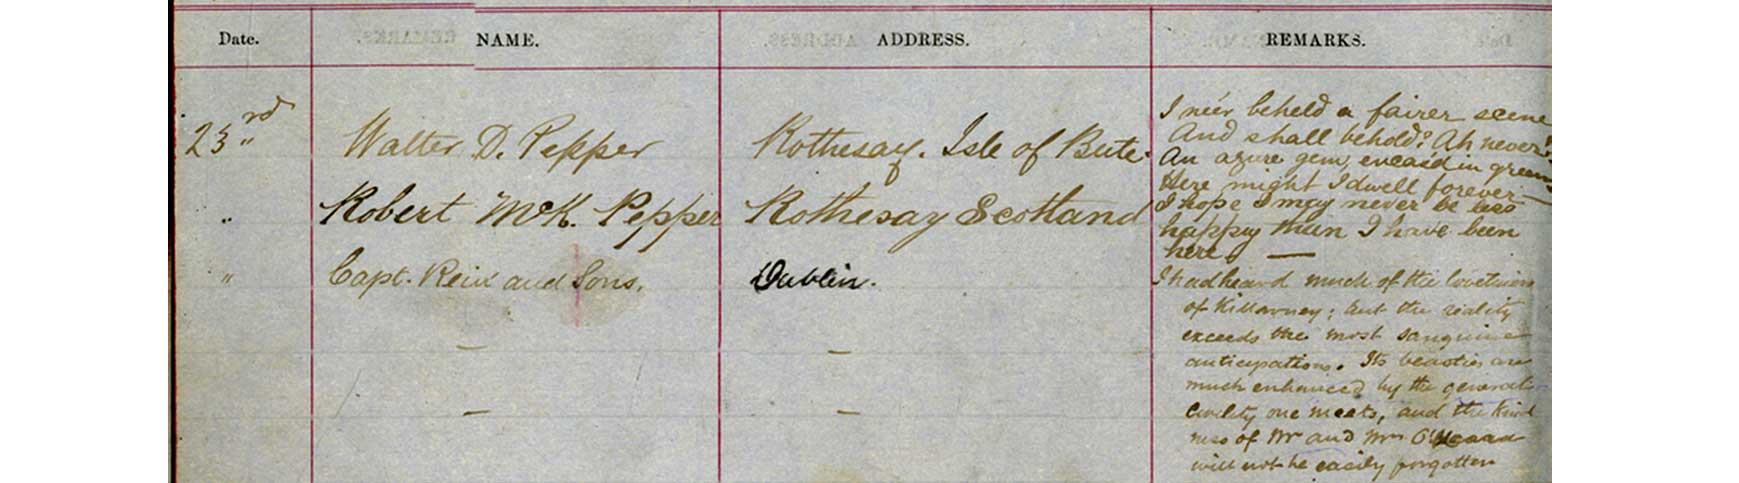 Date. NAME. ADDRESS. REMARKS.
23rd Walter D. Pepper Rothesay. Isle of Bute.
I ne'er beheld a fairer scene
And shall behold? Ah never!
An azure gem, encas'd in green
Here might I dwell forever
" Robert McK. Pepper Rothesay Scotland
I hope I may never be less
happy than I have been
here. —
" Capt. and Sons. Dublin.
I had heard much of the loveliness
of Killarney; but the reality
exceeds the most sanguine
anticipations. Its beauties are
much enhanced by the general
civility one meets, and the kind
ness of Mr and Mrs
will not be easily forgotten
— —
— —